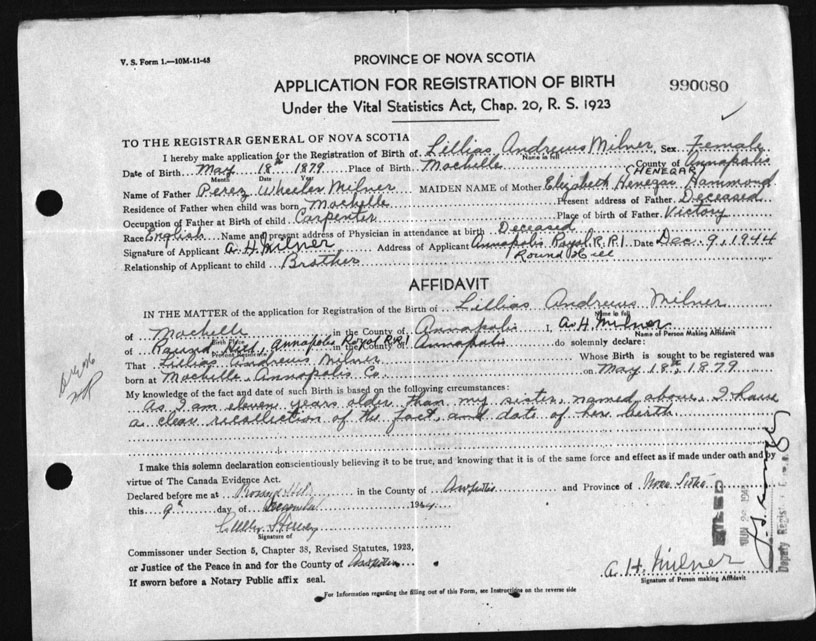 V. S. Form 1.—10M-11-43
PROVINCE OF NOVA SCOTIA
APPLICATION FOR REGISTRATION OF BIRTH
990080
Under the Vital Statistics Act, Chap. 20, R. S. 1923
TO THE REGISTRAR GENERAL OF NOVA SCOTIA
I hereby make application for the Registration of Birth of Lillias Andrews Milner, Sex Female
Name in full
Date of Birth May 18th 1879 Place of Birth Mochelle County of Annapolis
Month Date Year
(HENEGAR)
Name of Father Perez Wheeler Milner MAIDEN NAME of Mother Elizabeth Henegar Hammond
Residence of Father when child was born Mochelle Present address of Father Deceased
Occupation of Father at Birth of child Carpenter Place of birth of Father Victory
Race English Name and present address of Physician in attendance at birth Deceased
Signature of Applicant A. H. Milner Address of Applicant Annapolis Royal R.R.1 Date Dec. 9, 1944
Round Hill
Relationship of Applicant to child Brother
AFFIDAVIT
IN THE MATTER of the application for Registration of the Birth of Lillias Andrews Milner
Name in full
of Mochelle in the County of Annapolis I, A. H. Milner
Place of Birth Name of Person Making Affidavit
of Round Hill, Annapolis Royal R.R.1 in the County of Annapolis do solemnly declare:
Present Residence
That Lillias Andrews Milner Whose Birth is sought to be registered was
born at Mochelle, Annapolis Co. on May 18th, 1879
My knowledge of the fact and date of such Birth is based on the following circumstances:
As I am eleven years older than my sister, named above, I have
a clear recollection of the fact, and date of her birth
I make this solemn declaration conscientiously believing it to be true, and knowing that it is of the same force and effect as if made under oath and by
virtue of The Canada Evidence Act.
Declared before me at Round Hill in the County of Annapolis and Province of Nova Scotia
this 9th day of December 1944
Signature of
Commissioner under Section 5, Chapter 38, Revised Statutes, 1923,
or Justice of the Peace in and for the County of Annapolis
If sworn before a Notary Public affix seal.
A. H. Milner
Signature of Person making Affidavit
For Information regarding the filling out of this Form, see Instructions on the reverse side
FILED
Deputy Registrar